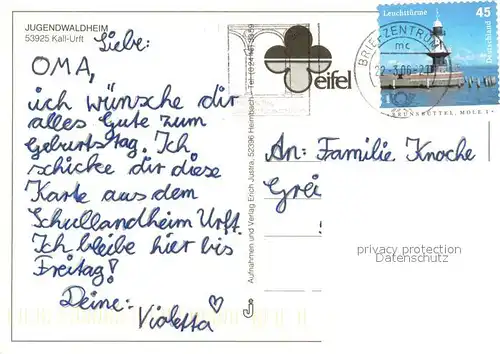 JUGENDWALDHEIM
53925 Kall-Urft
Liebe:
OMA,
ich wünsche dir
alles Gute zum
Geburtstag. Ich
schicke dir diese
Karte aus dem
Schullandheim Urft.
Ich bleibe hier bis
Freitag!
Deine:
Violetta
Aufnahmen und Verlag Erich Justra, 52396 Heimbach
eifel
BRIEFZENTRUM
mc
Leuchttürme 45
Deutschland
BRUNSBÜTTEL, MOLE 1
An: Familie Knoche
Grei
privacy protection
Datenschutz